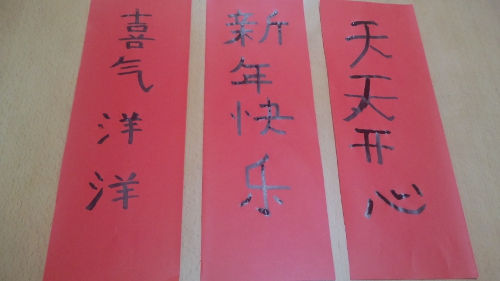 喜气洋洋
新年快乐
天天开心